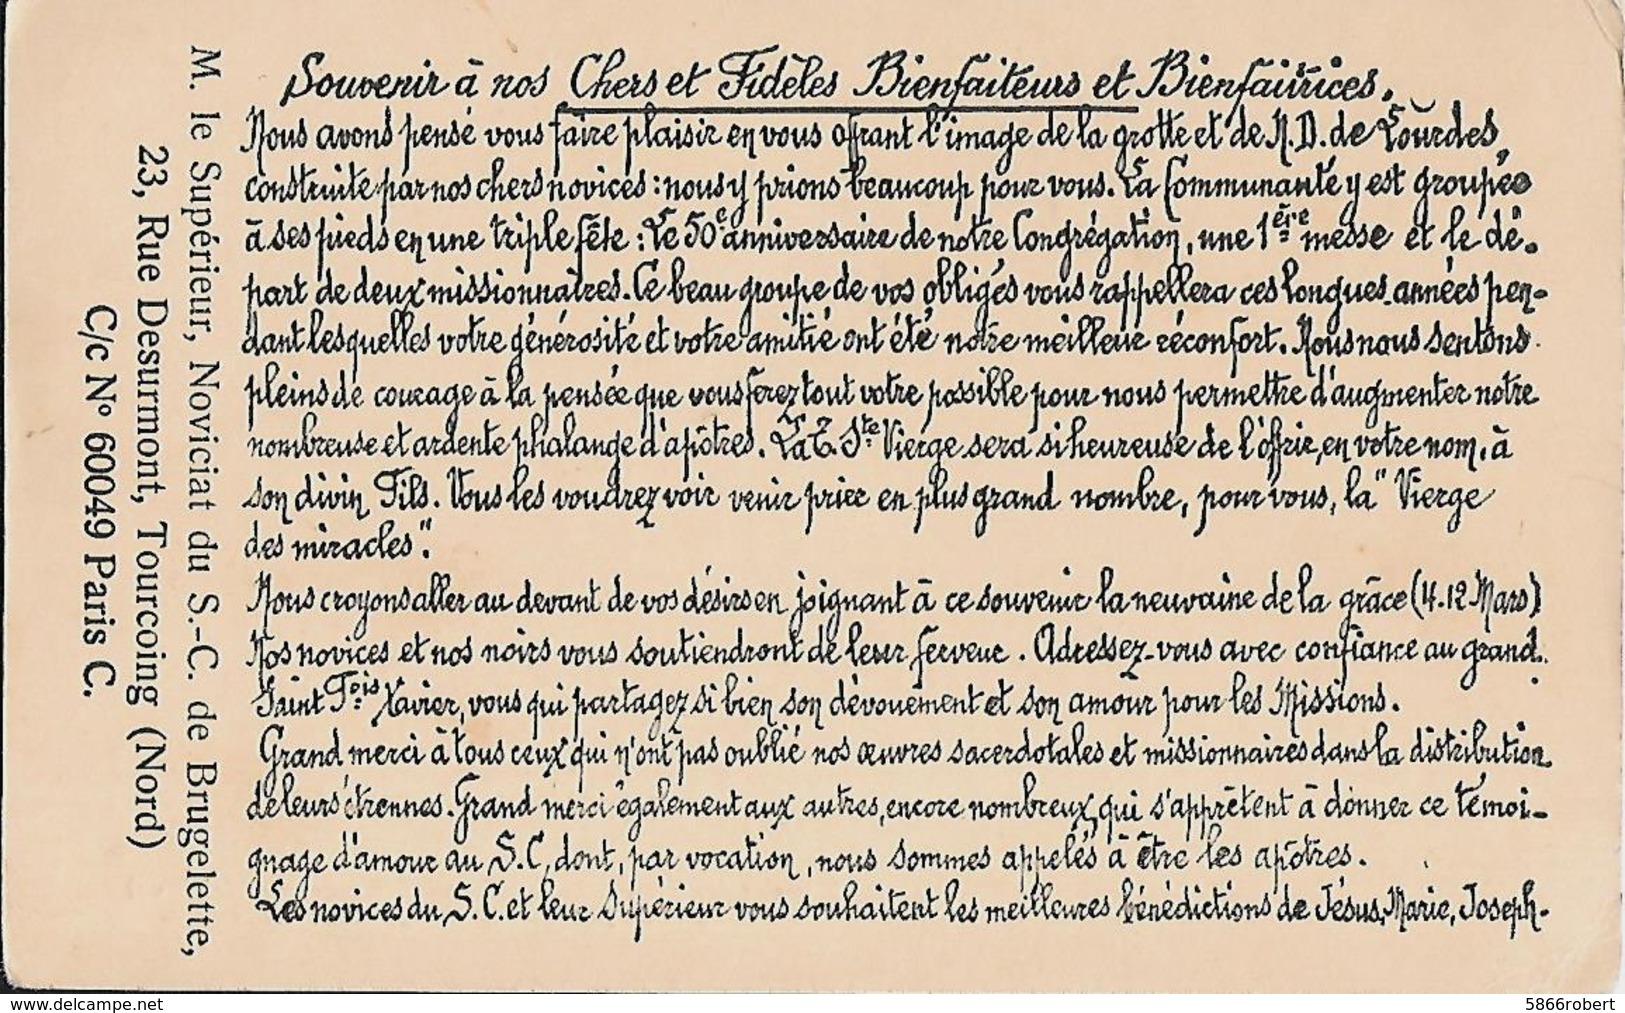 Souvenir à nos Chers et Fidèles Bienfaiteurs et Bienfaitrices.
Nous avons pensé vous faire plaisir en vous offrant l'image de la grotte et de N.D. de Lourdes,
construite par nos chers novices : nous y prions beaucoup pour vous. La Communauté y est groupée
à ses pieds en une triple fête : Le 50e anniversaire de notre Congrégation, une 1ère messe et le dé-
part de deux missionnaires. Ce beau groupe de vos obligés vous rappellera ces longues années pen-
dant lesquelles votre générosité et votre amitié ont été notre meilleur réconfort. Nous nous sentons
pleins de courage à la pensée que vous ferez tout votre possible pour nous permettre d'augmenter notre
nombreuse et ardente phalange d'apôtres. La T. Ste Vierge sera si heureuse de l'offrir, en votre nom, à
son divin Fils. Vous les voudrez voir venir prier en plus grand nombre, pour vous, la "Vierge
des miracles".
Nous croyons aller au devant de vos désirs en joignant à ce souvenir la neuvaine de la grâce (4-12 Mars)
Nos novices et nos noirs vous soutiendront de leur ferveur. Adressez-vous avec confiance au grand
Saint Fois Xavier, vous qui partagez si bien son dévouement et son amour pour les Missions.
Grand merci à tous ceux qui n'ont pas oublié nos œuvres sacerdotales et missionnaires dans la distribution
de leurs étrennes. Grand merci également aux autres, encore nombreux, qui s'apprêtent à donner ce témoi-
gnage d'amour au S.C, dont, par vocation, nous sommes appelés à être les apôtres.
Les novices du S.C. et leur Supérieur vous souhaitent les meilleures bénédictions de Jésus, Marie, Joseph-
M. le Supérieur, Noviciat du S.-C. de Brugelette,
23, Rue Desurmont, Tourcoing (Nord)
C/c N° 60049 Paris C.
www.delcampe.net
5866robert